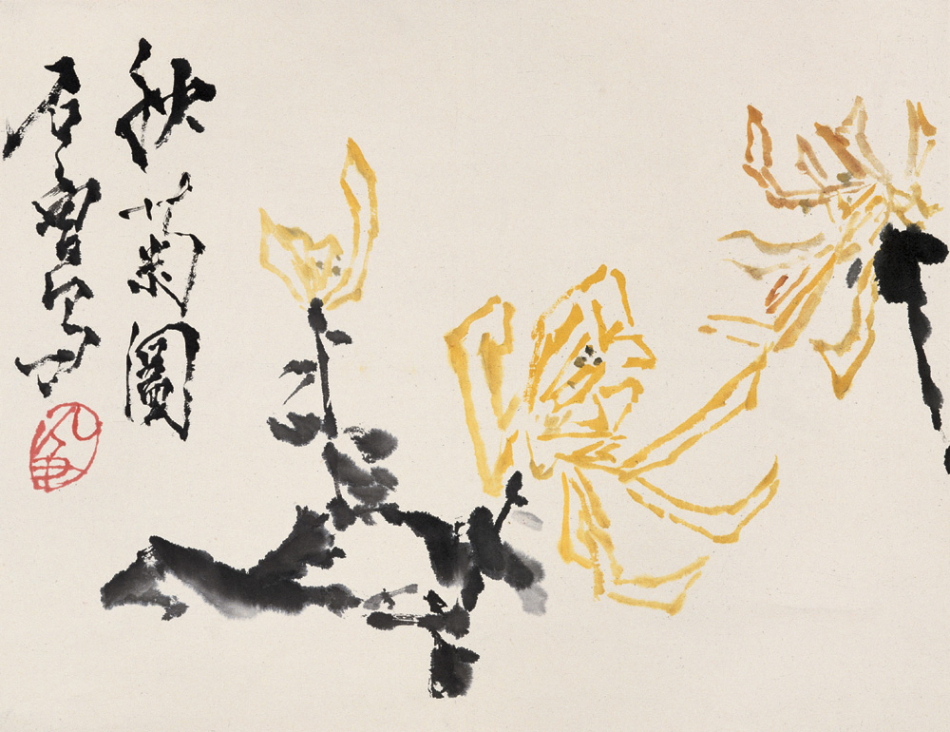 秋菊圖
石魯寫